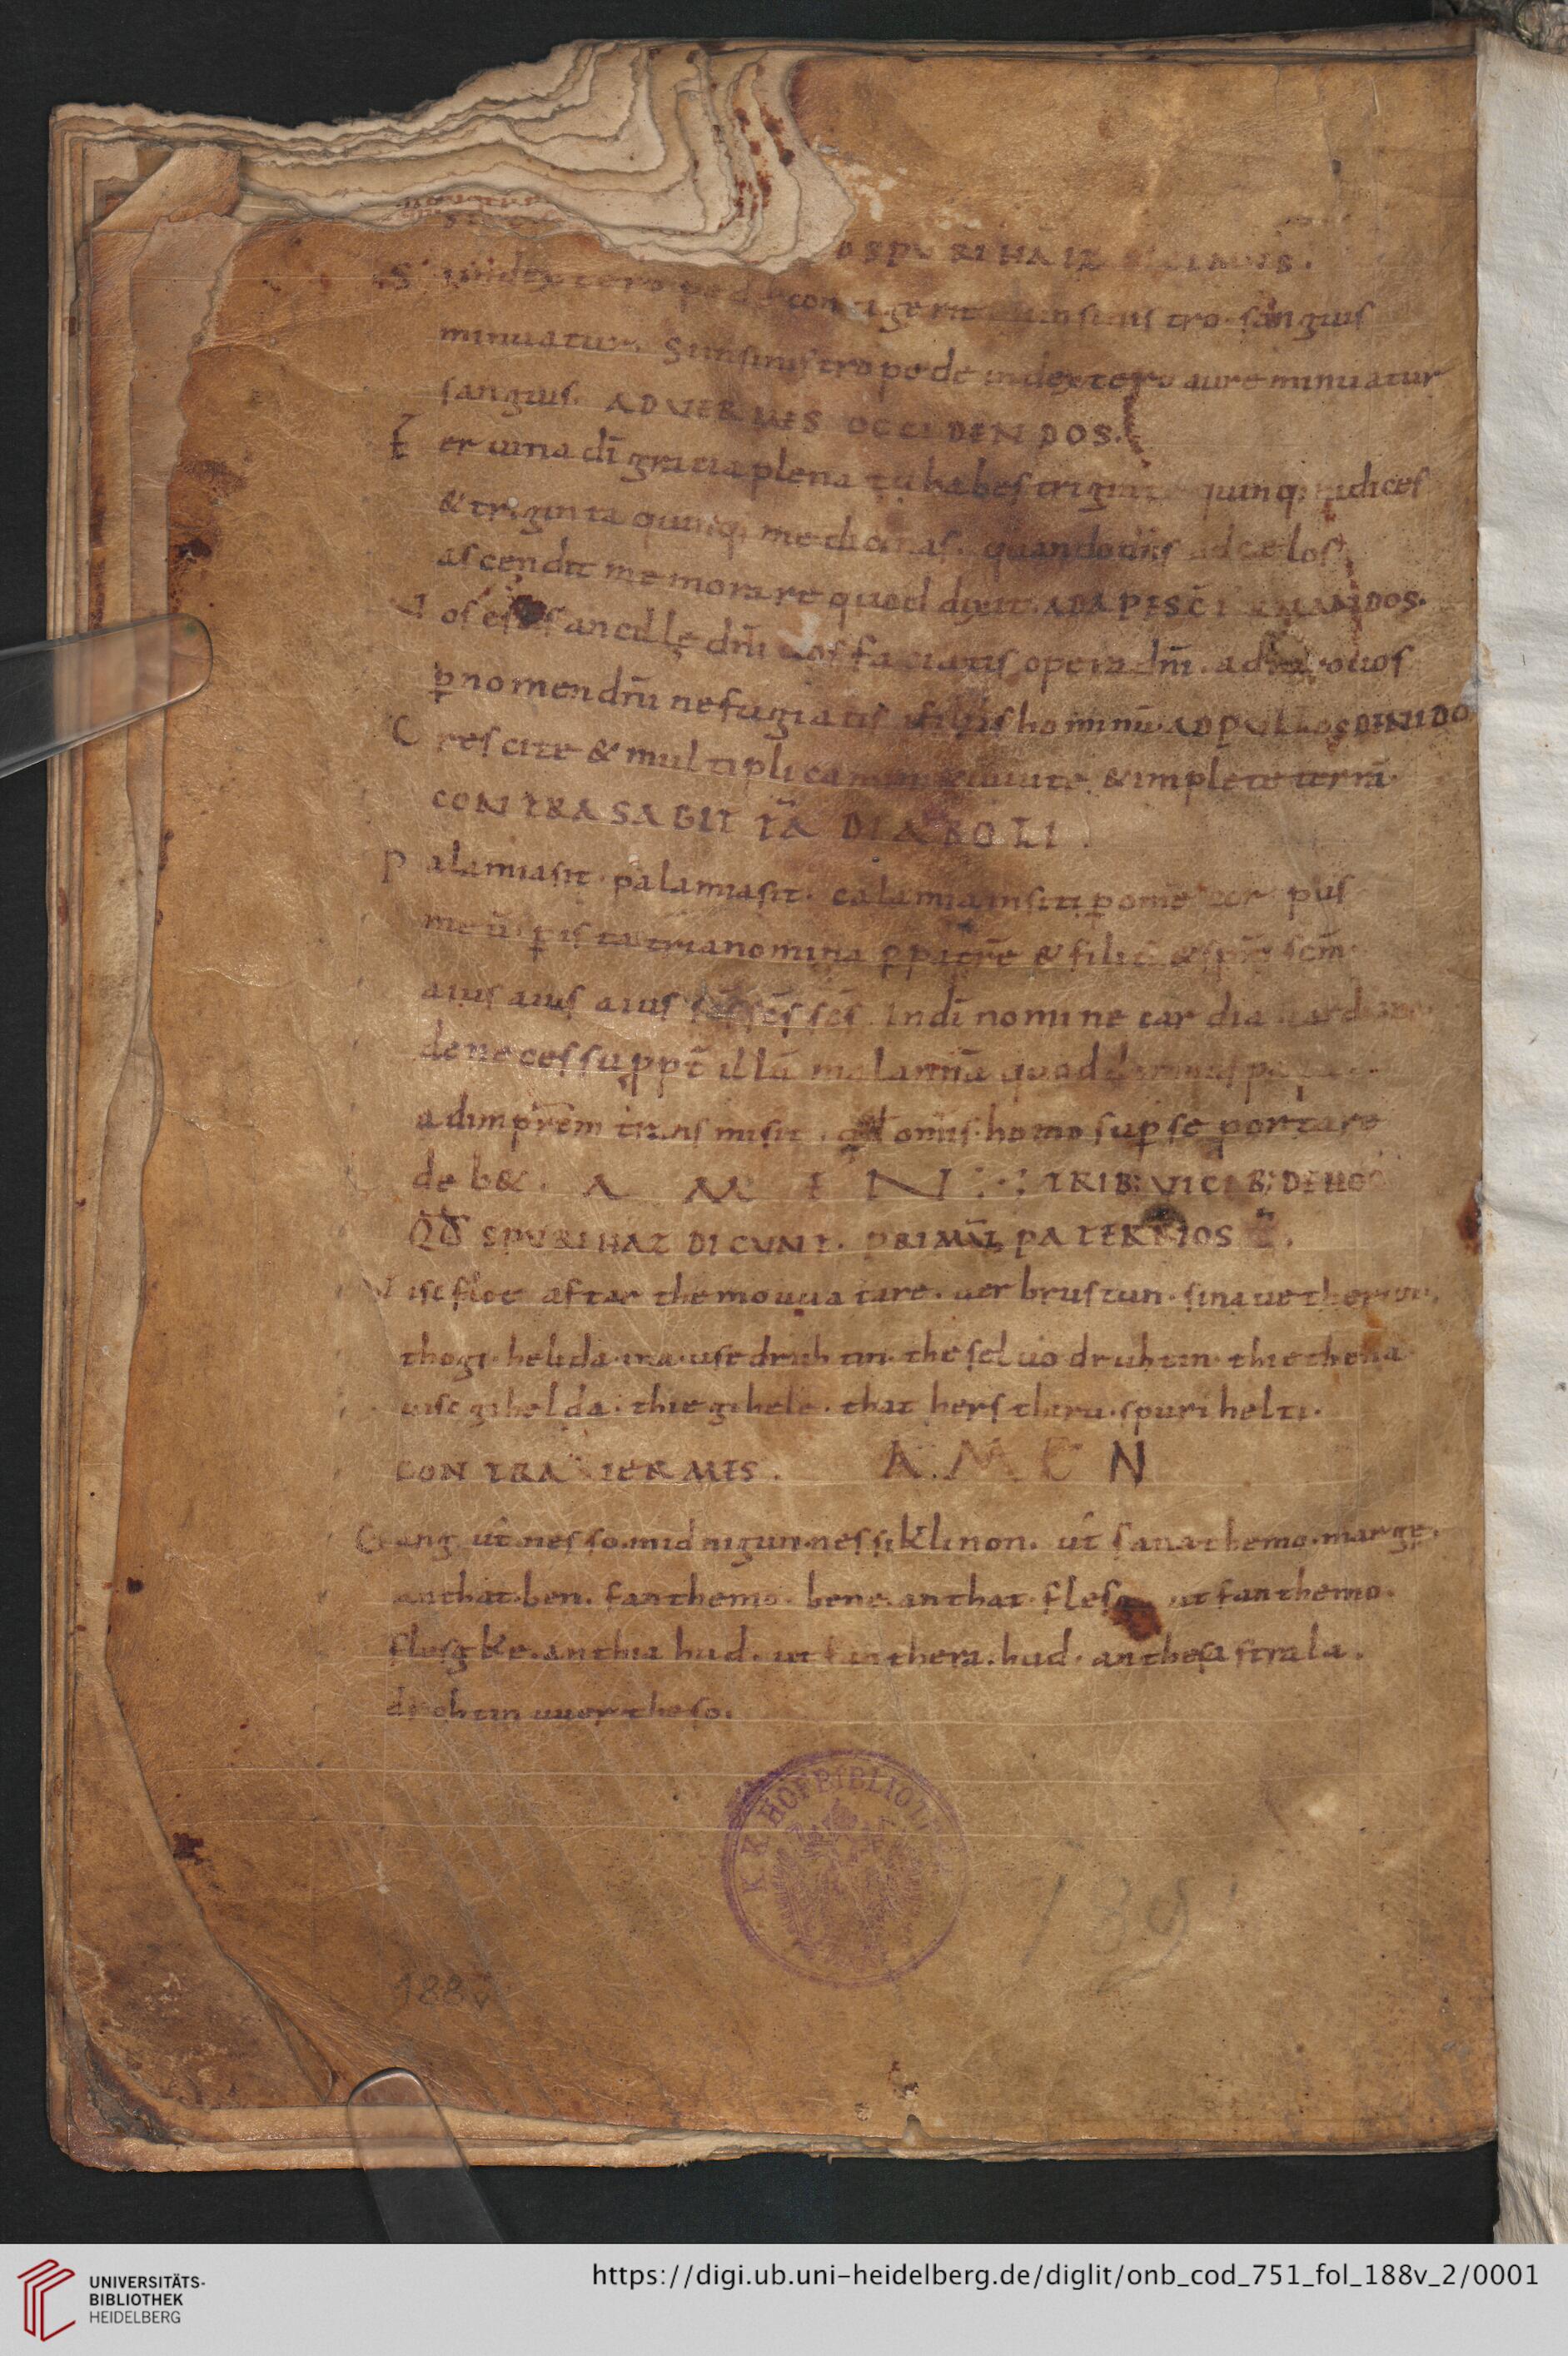 OS PURIHAIZ DICIMUS.
S in dextero pede contigerit in sinistro sanguis
minuatur. Si in sinistro pede in dextero aure minuatur
sanguis. AD VERMES OCCIDENDOS.
F er uina dī gratia plena tu habes triginta quinq; iudices
& triginta quinq; medicinas. quando dn̄s ad celos
ascendit memorare quod dixit. AD APES C
V os estis ancille dnī uos faciatis opera dnī. adiuro uos
p̱ nomen dnī ne fugiatis filiis hominū. AD PULLOS DE NIDO
C rescite & multiplicamini & uiuite & implete terrā
CONTRA SAGITTĀ DIABOLI.
P alamiasit. palamiasit. calamia insiti p̱ omē corpus
meū. p̱ ista tria nomina p̱ patrē & filiū & sp̄m scm̄.
aius aius aius sc̄s sc̄s sc̄s. In dī nomine cardia cardiani
de necessu ppt̄ illū malannū quod dominus papa
ad imp̄rem transmisit. qđ omīs homo sup se portare
deb&. A M E N ∴ TRIB; VICIB; DE HOC
QĐ SPURIHAZ DICUNT. PRIMŪ PATER NOSTER.
V isc flot aftar themo uuatare. uerbrustun. sina uetherun.
thogi helida. ina. use druhtin. the seluo druhtin. thie thena
uisc gihelda. thie gihele. that hers thera. spurihelti.
CONTRA VERMES. A. M E N
G ang ūt nesso. mid nigun. nessiklinon. ūt fana themo. marge.
an that. ben. fan themo. bene. an that. flesg ut fan themo.
flesgke. an thia hud. ut fan thera. hud. an thesa strala.
drohtin uuerthe so.
K. K. HOFBIBLIOTHEK
139
188v
UNIVERSITÄTS-
BIBLIOTHEK
HEIDELBERG
https://digi.ub.uni-heidelberg.de/diglit/onb_cod_751_fol_188v_2/0001